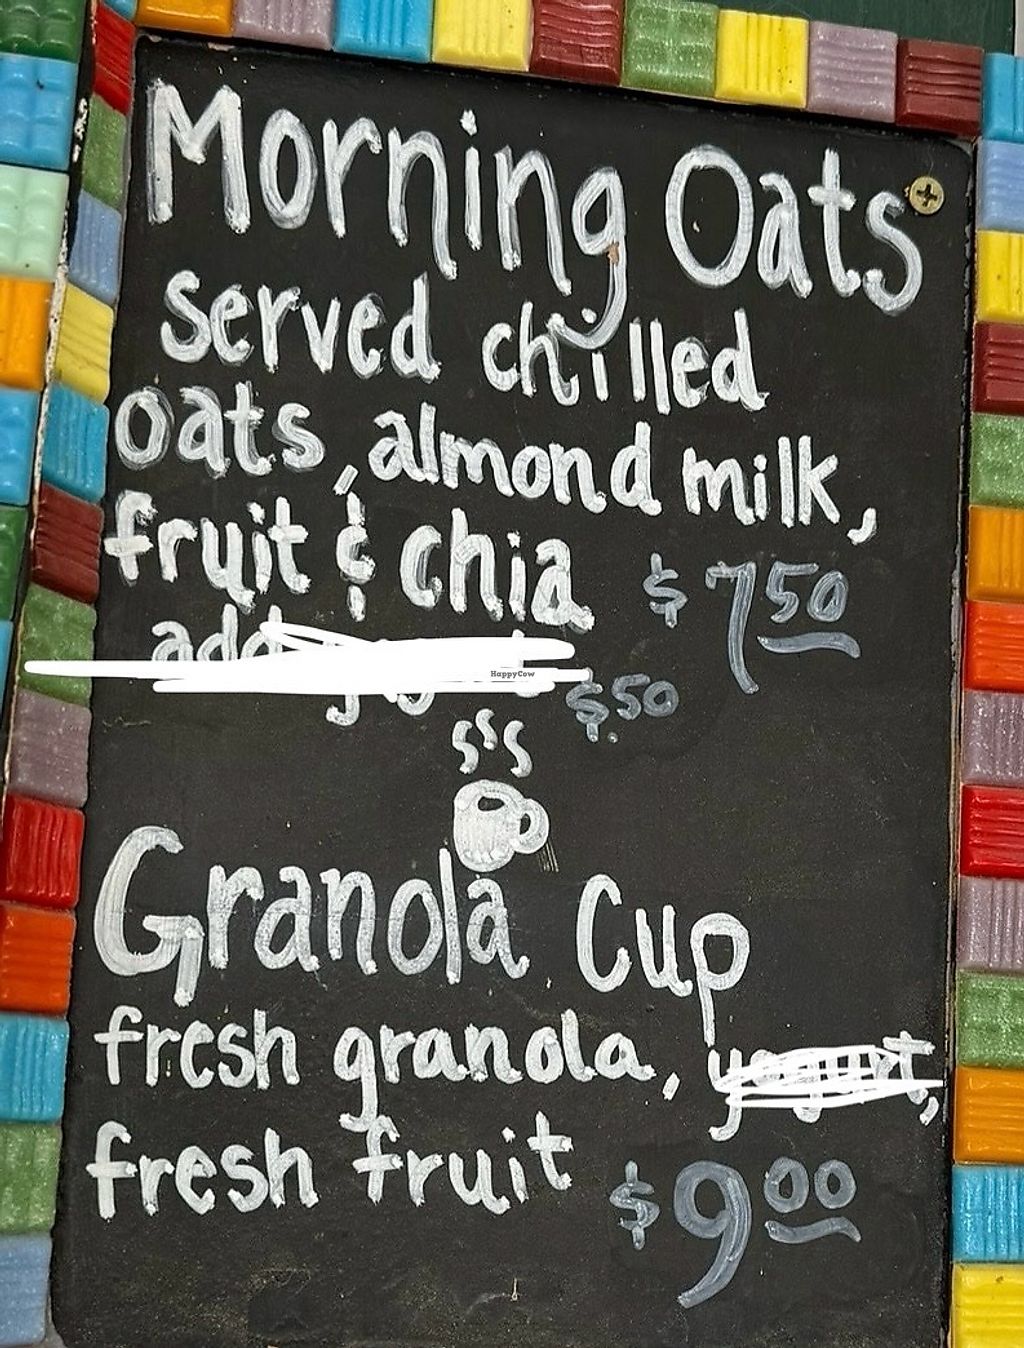 Morning Oats
served chilled
oats, almond milk,
fruit & chia $7.50
add $.50
HappyCow
Granola Cup
fresh granola, yogurt,
fresh fruit $9.00